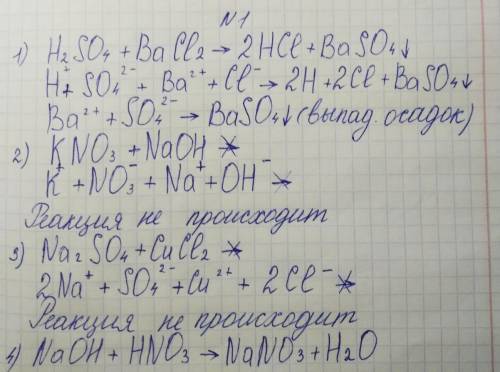 N1
1) H₂SO₄ + BaCl₂ → 2HCl + BaSO₄↓
H⁺ + SO₄²⁻ + Ba²⁺ + Cl⁻ → 2H + 2Cl + BaSO₄↓
Ba²⁺ + SO₄²⁻ → BaSO₄↓ (выпад. осадок)
2) KNO₃ + NaOH ↛
K⁺ + NO₃⁻ + Na⁺ + OH⁻ ↛
Реакция не происходит
3) Na₂SO₄ + CuCl₂ ↛
2Na⁺ + SO₄²⁻ + Cu²⁺ + 2Cl⁻ ↛
Реакция не происходит
4) NaOH + HNO₃ → NaNO₃ + H₂O